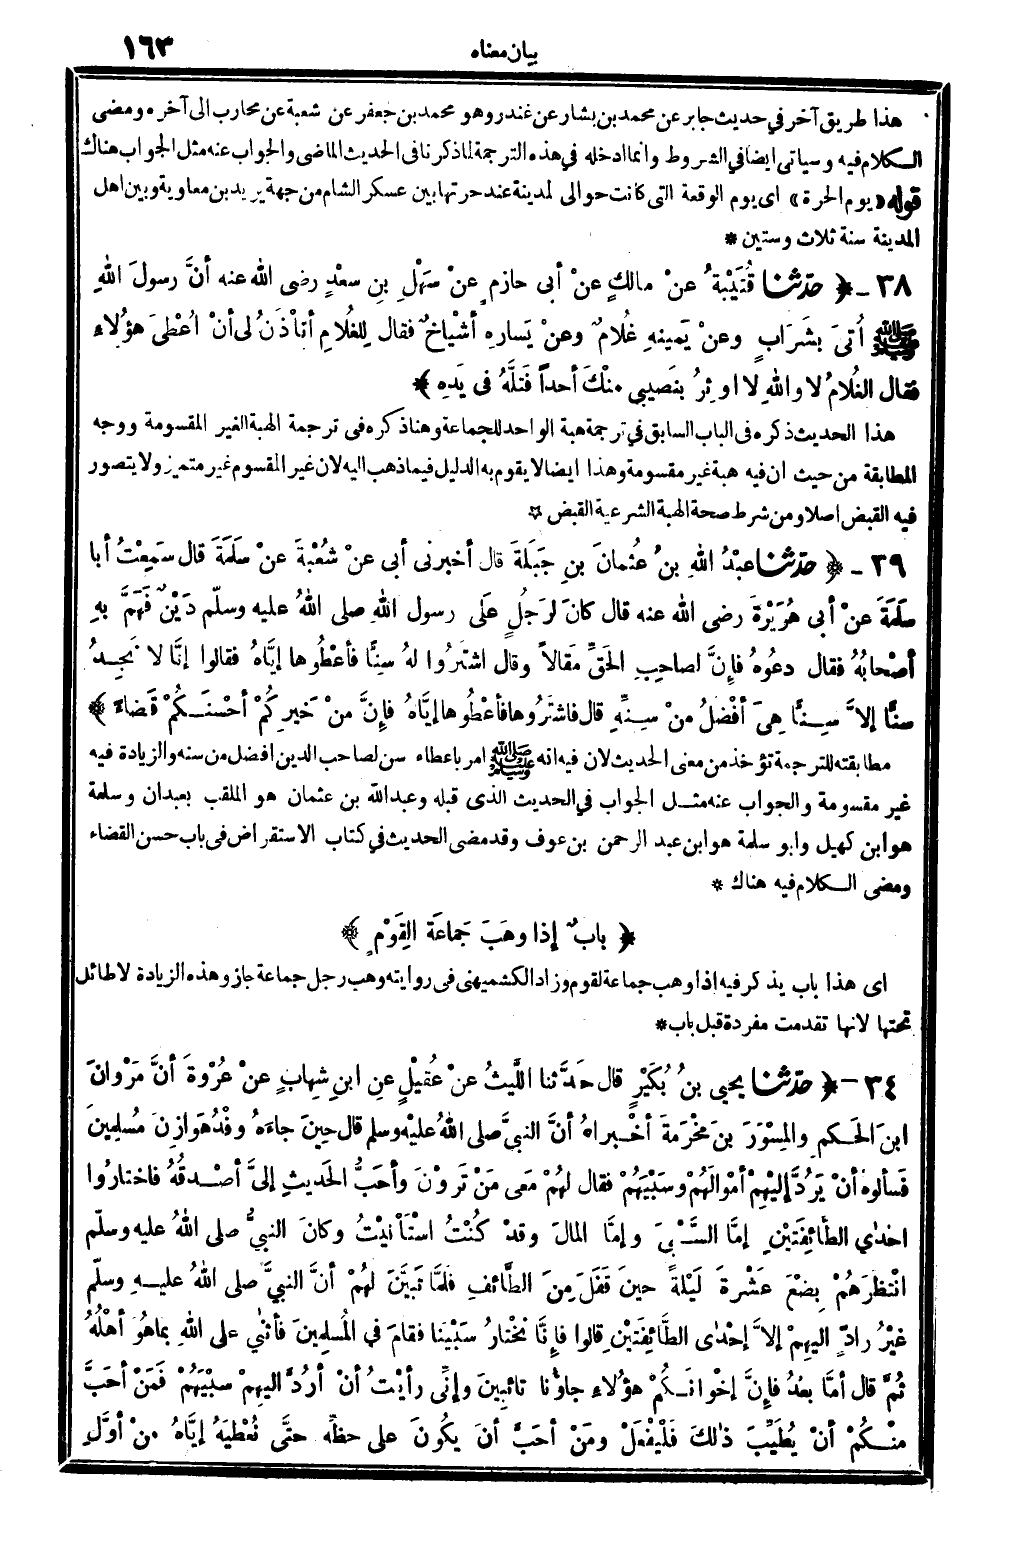 بيان معناه ١٦٣
هذا طريق آخر في حديث جابر عن محمد بن بشار عن غندر وهو محمد بن جعفر عن شعبة عن محارب الى آخره ومضى
الكلام فيه وسياتى ايضا في الشروط وانما ادخله في هذه الترجمة لما ذكرنا فى الحديث الماضى والجواب عنه مثل الجواب هناك
قوله «يوم الحرة» اى يوم الوقعة التى كانت حوالى لمدينة عند حرتها بين عسكر الشام من جهة يزيد بن معاوية وبين اهل
المدينة سنة ثلاث وستين *
٣٨ - ﴿ حدّثنا قُتَيْبَةُ عنْ مالكٍ عنْ أبى حازمٍ عنْ سَهْلِ بنِ سعْدٍ رضى الله عنه أنَّ رسولَ اللهِ
ﷺ أُتىَ بشَرَابٍ وعنْ يَمينهِ غُلامٌ وعنْ يَسارِهِ أشْياخٌ فقال لِلغُلامِ أتأذَنُ لى أنْ أُعْطىَ هؤُلاءِ
فقال الغُلامُ لا واللهِ لا اوثِرُ بنَصيبى منْكَ أحداً فَتلَّهُ فى يَدِهِ ﴾
هذا الحديث ذكره فى الباب السابق في ترجمة هبة الواحد للجماعة وهنا ذكره فى ترجمة الهبة الغير المقسومة ووجه
المطابقة من حيث ان فيه هبة غير مقسومة وهذا ايضا لا يقوم به الدليل فيما ذهب اليه لان غير المقسوم غير متميز ولا يتصور
فيه القبض اصلا ومن شرط صحة الهبة الشرعية القبض ☆
٣٩ - ﴿ حدّثنا عبْدُ اللهِ بنُ عُثمانَ بنِ جَبَلَةَ قال أخبرنى أبى عنْ شُعْبَةَ عنْ سَلَمَةَ قال سَمِعْتُ أبا
سَلَمَةَ عنْ أبى هُرَيْرَةَ رضى الله عنه قال كانَ لرَجُلٍ عَلَى رسول اللهِ صلى اللهُ عليه وسلّم دَيْنٌ فَهَمَّ بهِ
أصْحابُهُ فقال دعُوهُ فإِنَّ لصاحِبِ الحَقِّ مَقالاً وقال اشْتَرُوا لهُ سِنًّا فأعْطُوها إيَّاهُ فقالوا إنَّا لا نَجِدُ
سنًّا إلاَّ سِنًّا هِىَ أفْضلُ منْ سِنِّهِ قال فاشْتَرُوها فأعْطُوها إيَّاهُ فإِنَّ منْ خَيرِكُمْ أحْسنَكُمْ قَضاءً ﴾
مطابقته للترجمة تؤخذ من معنى الحديث لان فيه انه ﷺ امر باعطاء سن لصاحب الدين افضل من سنه والزيادة فيه
غير مقسومة والجواب عنه مثل الجواب في الحديث الذى قبله وعبدالله بن عثمان هو الملقب بعبدان وسلمة
هو ابن كهيل وابو سلمة هو ابن عبد الرحمن بن عوف وقد مضى الحديث في كتاب الاستقراض فى باب حسن القضاء
ومضى الكلام فيه هناك *
﴿ بابٌ إذا وهَبَ جَماعَة القِوْمٍ ﴾
اى هذا باب يذكر فيه اذا وهب جماعة لقوم وزاد الكشميهنى فى روايته وهب رجل جماعة جاز وهذه الزيادة لا طائل
تحتها لانها تقدمت مفردة قبل باب *
٣٤ - ﴿ حدّثنا يحيى بنُ بُكَيْرٍ قال حَدَّثنا اللَّيثُ عنْ عُقَيْلٍ عنِ ابنِ شِهابٍ عنْ عُرْوةَ أنَّ مَرْوانَ
ابنَ الحَكمِ والمِسْوَرَ بنَ مَخْرَمةَ أخْبراهُ أنَّ النبيَّ صلى اللهُ عليْهِ وسلم قال حِينَ جاءَهُ وفْدُ هَوازِنَ مُسْلِمِينَ
فَسألوهُ أنْ يَرُدَّ إليْهِمْ أمْوالَهُمْ وسَبْيَهُمْ فقال لهُمْ مَعى مَنْ تَرَوْنَ وأحَبُّ الحَديثِ إلىَّ أصْدقُهُ فاختارُوا
احْدٰي الطَّائِفَتَيْنِ إمَّا السَّبْىَ وإمَّا المالَ وقدْ كُنْتُ اسْتَأْنيْتُ وكانَ النبيُّ صلى اللهُ عليه وسلّم
انْتظرَهُمْ بِضْعَ عَشْرَةَ لَيْلةً حينَ قَفَلَ مِنَ الطَّائفِ فلمَّا تَبيَّنَ لهُمْ أنَّ النبيَّ صلى اللهُ عليهِ وسلّم
غيْرُ رادٍّ اليهِمْ إلاَّ إحْدٰى الطَّائِفَتَيْنِ قالوا فإِنَّا نَخْتارُ سَبْيَنا فقامَ في المُسلِمينَ فأثنٰي على اللهِ بما هُوَ أهْلُهُ
ثُمَّ قال أمَّا بعْدُ فإِنَّ إخْوانَكُمْ هؤُلاءِ جاؤُنا تائبِينَ وإنِّى رأيْتُ أنْ أرُدَّ اليهِمْ سبْيَهُمْ فَمَنْ أحَبَّ
منْكُمْ أنْ يُطَيِّبَ ذٰلكَ فَلْيفْعَلْ ومَنْ أحَبَّ أنْ يكُونَ على حظِّهِ حتَّى نُعْطِيَهُ إيَّاهُ منْ أوَّلِ